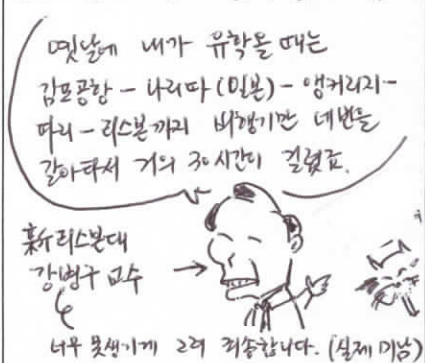 옛날에 내가 유학올 때는
김포공항 - 나리따 (일본) - 앵커리지 -
파리 - 리스본까지 비행기만 네번을
갈아타서 거의 30시간이 걸렸죠.
리스본대
강병구 교수
너무 못생기게 그려 죄송합니다. (실제 미남)